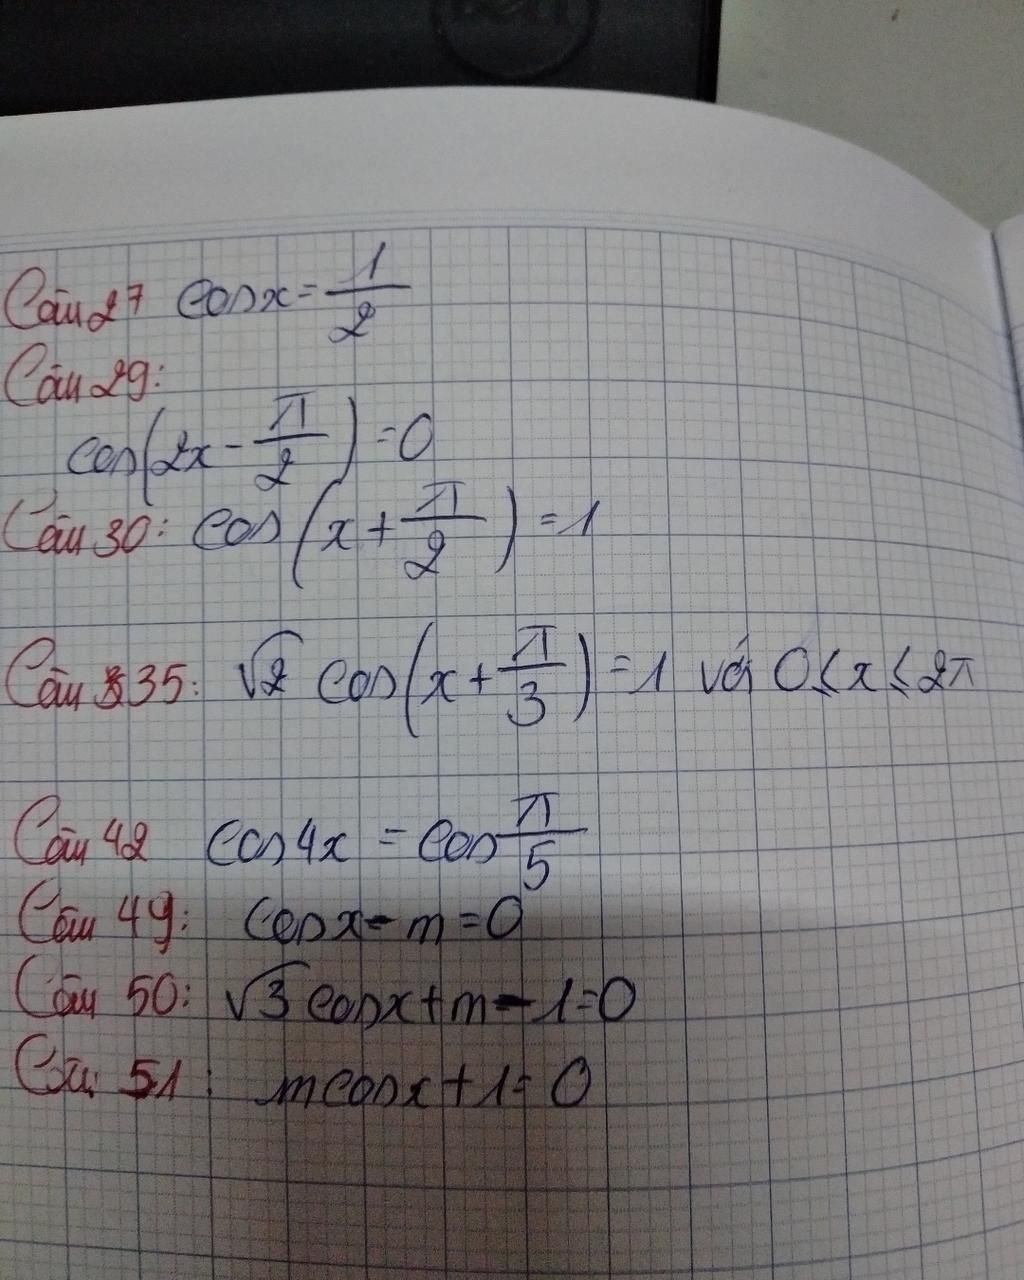 Câu 27 cosx = 1/2
Câu 29:
cos(2x - π/2) = 0
Câu 30: cos(x + π/2) = 1
Câu 35: √2 cos(x + π/3) = 1 với 0 ≤ x ≤ 2π
Câu 42 cos4x = cos π/5
Câu 49: cosx - m = 0
Câu 50: √3 cosx + m - 1 = 0
Câu 51: mcosx + 1 = 0